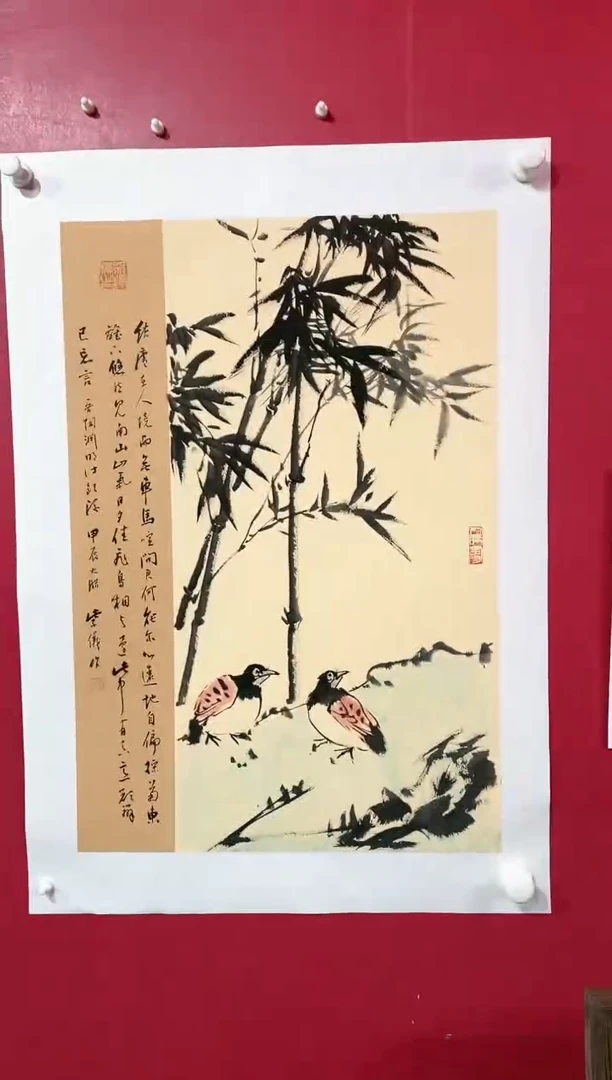 結廬在人境而無車馬喧問君何能尔心遠地自偏採菊東
籬下悠然見南山山氣日夕佳飛鳥相与還此中有真意欲辨
已忘言 陶渊明 甲辰